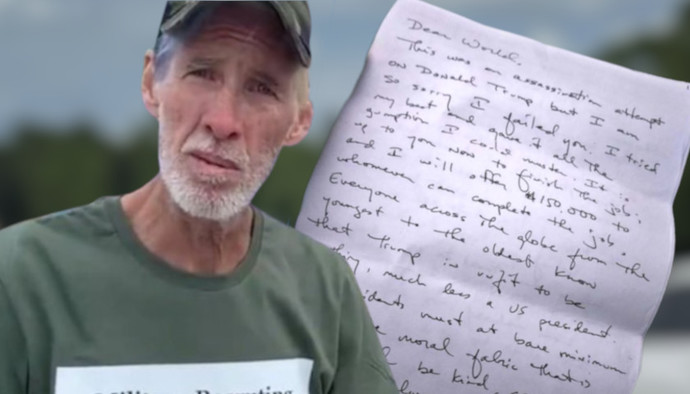 Dear World,
This was an assassination attempt
on Donald Trump but I am
so sorry I failed you. I tried
my best and gave it all the
gumption I could muster. It is
up to you now to finish the job;
and I will offer $150,000 to
whomever can complete the job.
Everyone across the globe from the
youngest to the oldest know
that Trump is unfit to be
much less a US president.
must at bare minimum
moral fabric that is
be kind